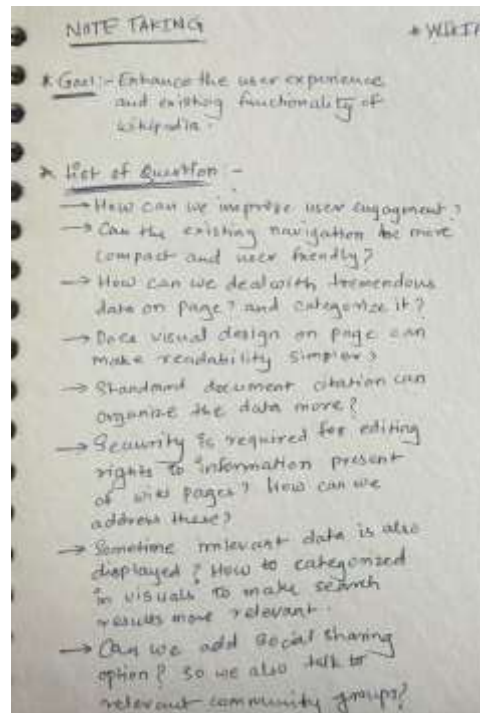 NOTE TAKING
* WIKIP
* Goal:- Enhance the user experience
and existing functionality of
wikipedia.
* List of Question :-
→ How can we improve user engagement?
→ Can the existing navigation be more
compact and user friendly?
→ How can we deal with tremendous
data on page? and categorize it?
→ Does visual design on page can
make readability simpler?
→ Standard document citation can
organize the data more?
→ Security is required for editing
rights to information present
of wiki pages? How can we
address these?
→ Sometime data is also
displayed? How to categorized
in visuals to make search
results more relevant.
→ Can we add social sharing
option? So we also talk to
relevant community groups?